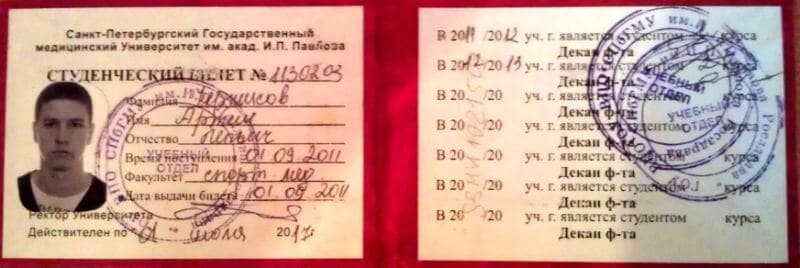 Санкт-Петербургский Государственный
медицинский Университет им. акад. И.П. Павлова
СТУДЕНЧЕСКИЙ БИЛЕТ № 1130203
Фамилия
Имя Артем
Отчество Ильич
Время поступления 01.09.2011
Факультет спорт. мед
Дата выдачи билета 01.09.2011
Ректор Университета
Действителен по 1 июля 2017г
УЧЕБНЫЙ
ОТДЕЛ
В 2011/2012 уч. г. является студентом курса
Декан ф-та
В 2012/2013 уч. г. является студентом курса
Декан ф-та
В 20 /20 уч. г. является студентом курса
Декан ф-та
В 20 /20 уч. г. является студентом курса
Декан ф-та
В 20 /20 уч. г. является студентом курса
Декан ф-та
В 20 /20 уч. г. является студентом курса
Декан ф-та
В 20 /20 уч. г. является студентом курса
Декан ф-та
УЧЕБНЫЙ
ОТДЕЛ
УЧЕБНЫЙ
ОТДЕЛ